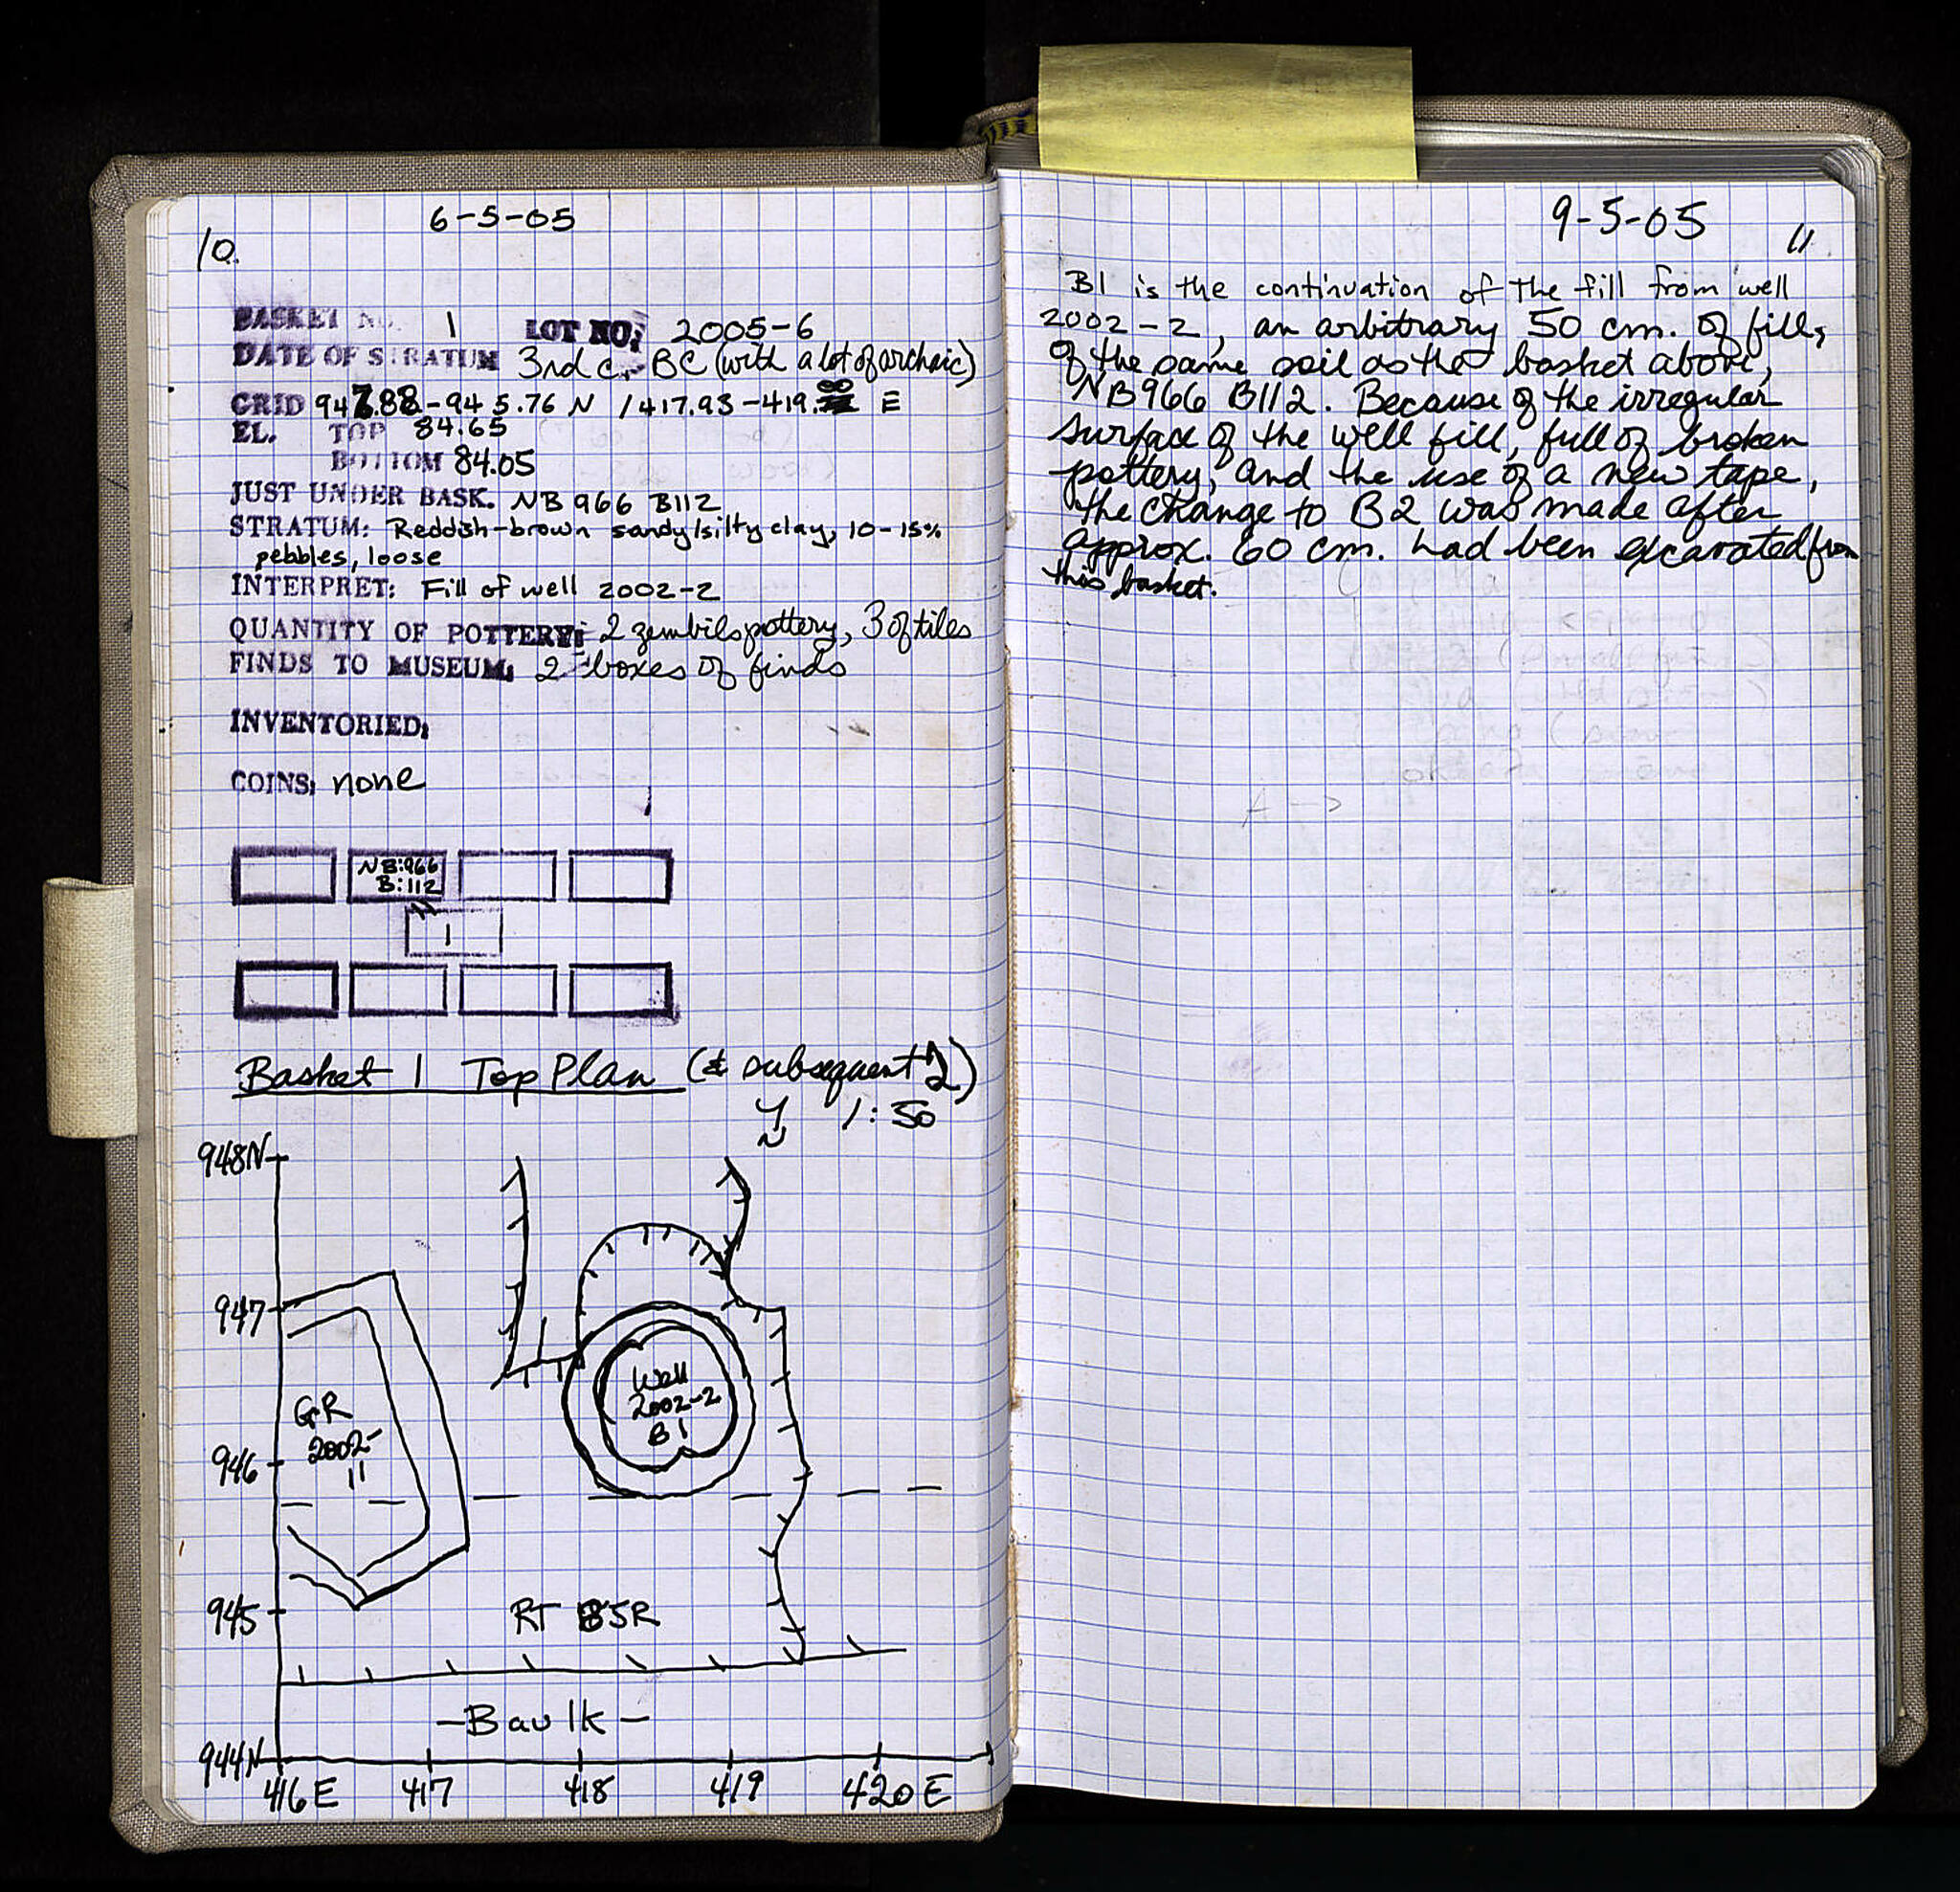 6-5-05
10
BASKET NO. 1 LOT NO: 2005-6
DATE OF STRATUM 3rd c. BC (with a lot of archaic)
GRID 947.88-945.76 N / 417.93-419.00 E
EL. TOP 84.65
BOTTOM 84.05
JUST UNDER BASK. NB 966 B112
STRATUM: Reddish-brown sandy/silty clay, 10-15%
pebbles, loose
INTERPRET: Fill of well 2002-2
QUANTITY OF POTTERY: 2 zembils pottery, 3 of tiles
FINDS TO MUSEUM: 2 boxes of finds
INVENTORIED:
COINS: none
NB:966
B:112
1
Basket 1 Top Plan (& subsequent 2)
N 1:50
948N
947
946
945
944N
GR
2002-
11
Well
2002-2
B1
RT 85R
-Baulk-
416E 417 418 419 420E
9-5-05
11
B1 is the continuation of the fill from well
2002-2, an arbitrary 50 cm. of fill,
of the same soil as the basket above,
NB966 B112. Because of the irregular
surface of the well fill, full of broken
pottery, and the use of a new tape,
the change to B2 was made after
approx. 60 cm. had been excavated from
this basket.
A →